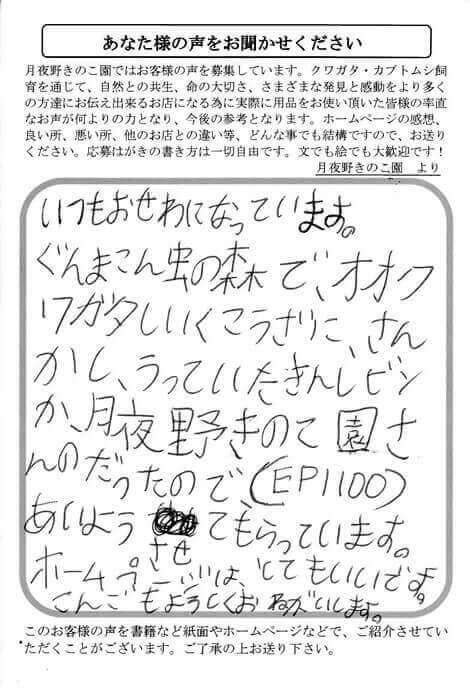 あなた様の声をお聞かせください
月夜野きのこ園ではお客様の声を募集しています。クワガタ・カブトムシ飼
育を通じて、自然との共生、命の大切さ、さまざまな発見と感動をより多く
の方達にお伝え出来るお店になる為に実際に用品をお使い頂いた皆様の率直
なお声が何よりの力となり、今後の参考となります。ホームページの感想、
良い所、悪い所、他のお店との違い等、どんな事でも結構ですので、お送り
ください。応募はがきの書き方は一切自由です。文でも絵でも大歓迎です！
月夜野きのこ園 より
いつもおせわになっています。
ぐんまこん虫の森で、オオク
ワガタしいくこうざに、さん
かし、うっていたきんしビン
か、月夜野きのこ園さ
んのだったので、(EP1100)
あいよう
させ
てもらっています。
ホームページは、とてもいいです。
こんごもよろしくおねがいします。
このお客様の声を書籍など紙面やホームページなどで、ご紹介させてい
ただくことがございます。ご了承の上お送り下さい。